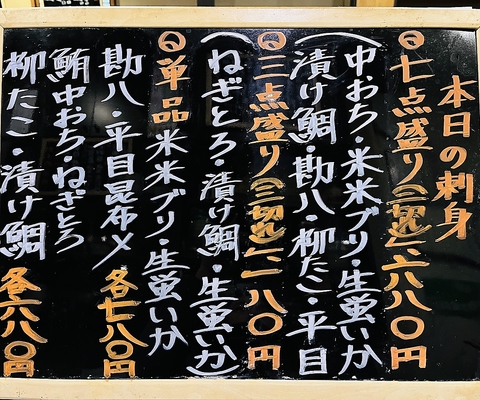 本日の刺身
◎七点盛り(二切れ)、一六八〇円
(中おち・氷見ブリ・生蛍いか
漬け鯛・勘八・柳たこ・平目
◎三点盛り(二切れ)、一一八〇円
(ねぎとろ・漬け鯛・生蛍いか)
◎単品 氷見ブリ・生蛍いか
勘八・平目昆布〆 各七八〇円
鮪中おち・ねぎとろ
柳たこ・漬け鯛 各六八〇円